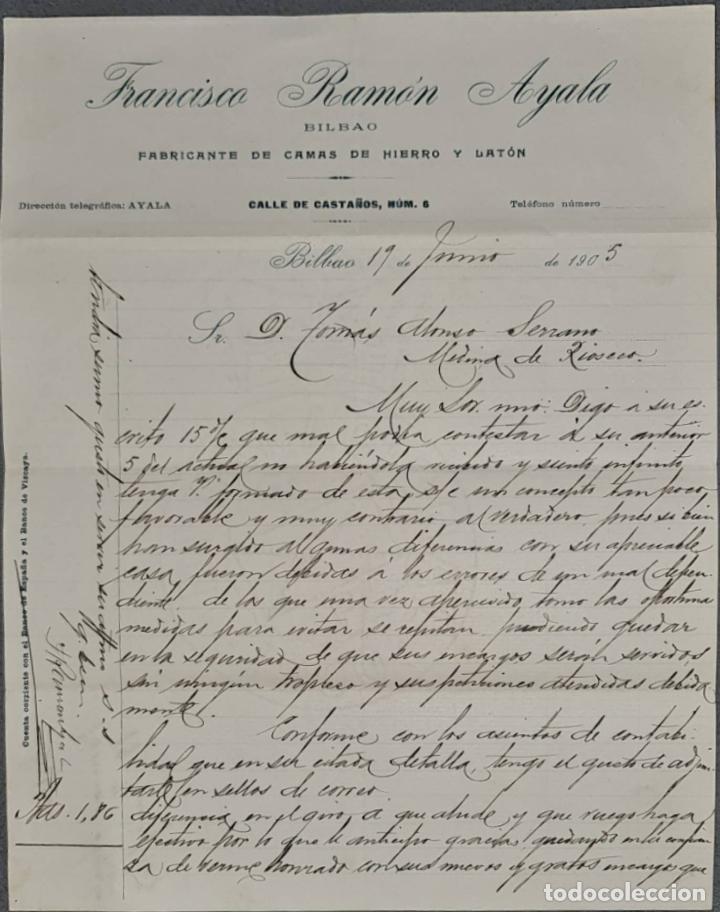 Francisco Ramón Ayala
BILBAO
FABRICANTE DE CAMAS DE HIERRO Y LATÓN
Dirección telegráfica: AYALA
CALLE DE CASTAÑOS, NÚM. 6
Teléfono número
Bilbao 19 de Junio de 1905
Sr. D. Tomás Alonso Serrano
Medina de Rioseco.
Muy Sor. mio: Digo á su es-
crito 15 % que mal podia contestar á su anterior
5 del actual no habiéndola recibido y siento infinito
tenga V. formado de esta s/c un concepto tan poco
favorable y muy contrario al verdadero, pues si bien
han surgido algunas diferencias con su apreciable
casa, fueron debidas á los errores de un mal depen-
diente de los que una vez apercivido, tomo las oportunas
medidas para evitar se repitan pudiendo quedar
en la seguridad de que sus encargos serán servidos
sin ningún tropieso y sus peticiones atendidas debida
mente.
Conforme con los asientos de contabi-
lidad que en su citada detalla, tengo el gusto de adjun-
tarle en sellos de correo
Ptas. 1,86 diferencia en el giro á que alude y que ruego haga
efectivo por lo que le anticipo gracias quedando en la confian-
za de verme honrado con sus nuevos y gratos encargos que
tendrá sumo gusto en servir su affmo s. s.
Cuenta corriente con el Banco de España y el Banco de Vizcaya.
todocoleccion
todocoleccion.net